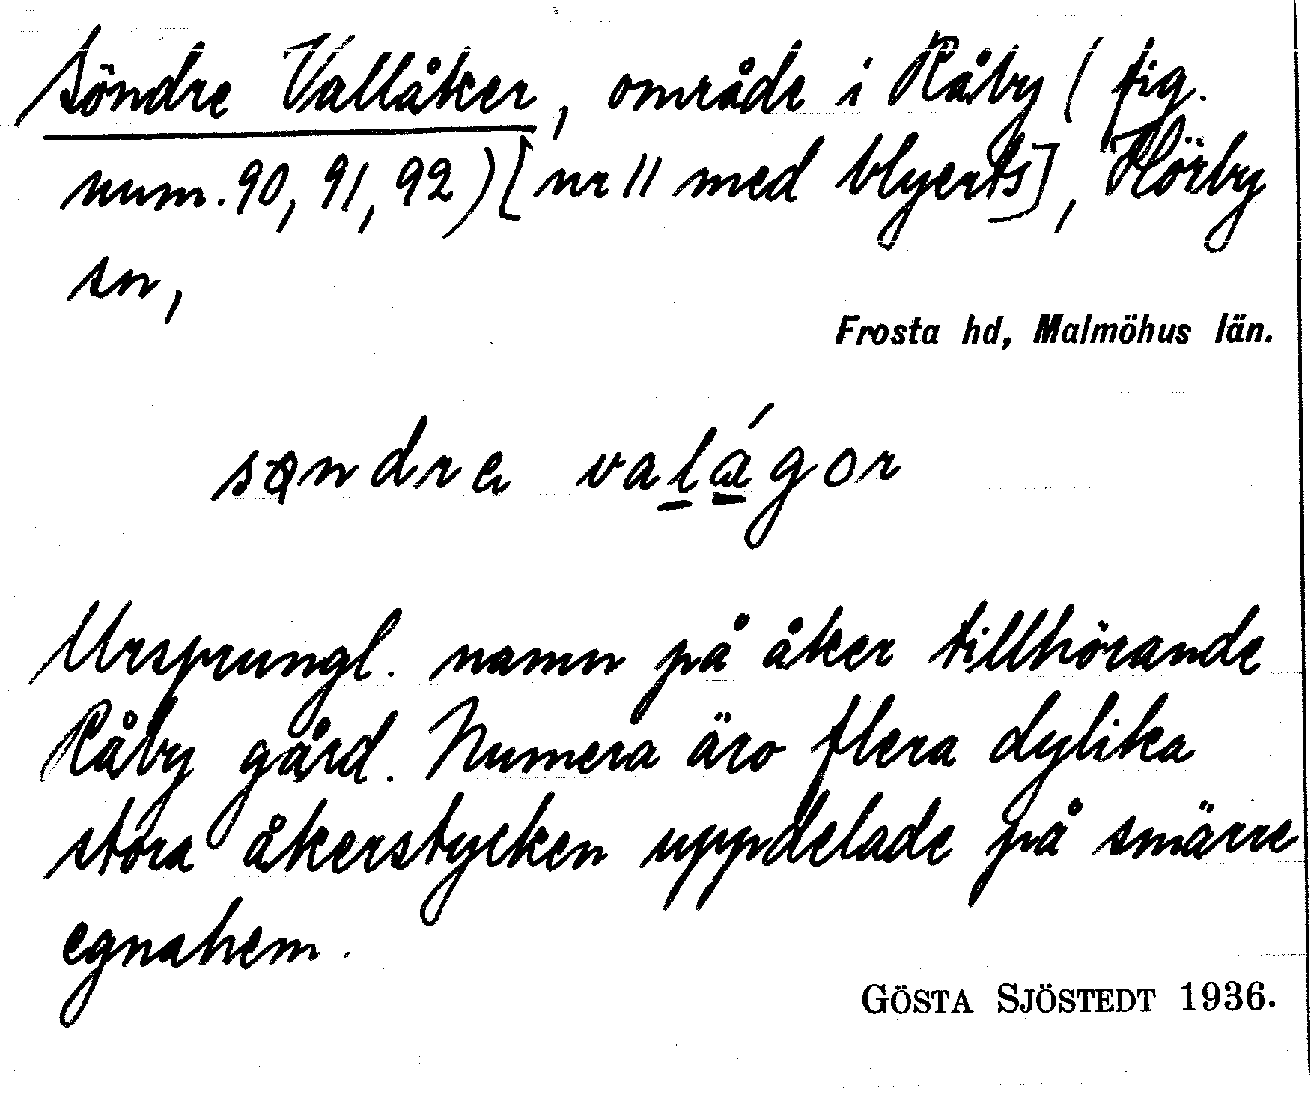 Söndre Vallåker, område i Råby (fig.
num. 90, 91, 92) [nr 11 med blyerts], Hörby
sn,
Frosta hd, Malmöhus län.
Ursprungl. namn på åker tillhörande
Råby gård. Numera äro flera dylika
stora åkerstycken uppdelade på smärre
egnahem.
GÖSTA SJÖSTEDT 1936.